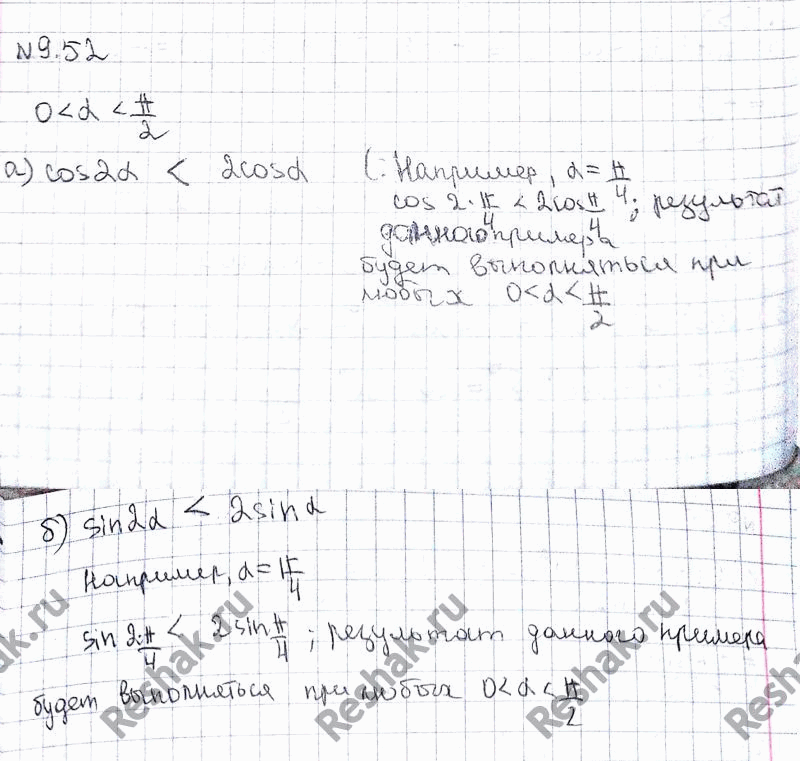 №9.52
0<α<π/2
а) cos2α < 2cosα
(: Например, α=π/4
cos 2·π/4 < 2cosπ/4; результат
данного примера
будет выполняться при
любых 0<α<π/2
б) sin2α < 2sinα
Например, α=π/4
sin 2·π/4 < 2sinπ/4; результат данного примера
будет выполняться при любых 0<α<π/2
Reshak.ru
Reshak.ru
Reshak.ru
Reshak.ru
Resh